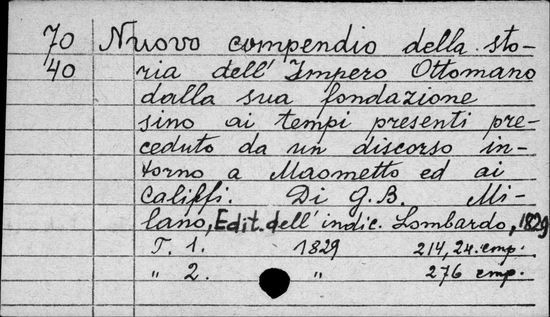 70 Nuovo compendio della sto-
40 ria dell' Impero Ottomano
dalla sua fondazione
sino ai tempi presenti pre-
ceduto da un discorso in-
torno a Maometto ed ai
Califfi. Di G.B. Mi-
lano, Edit. dell' indic. Lombardo, 1829
T. 1. 1829 214, 24. стр.
" 2. " 276 стр.